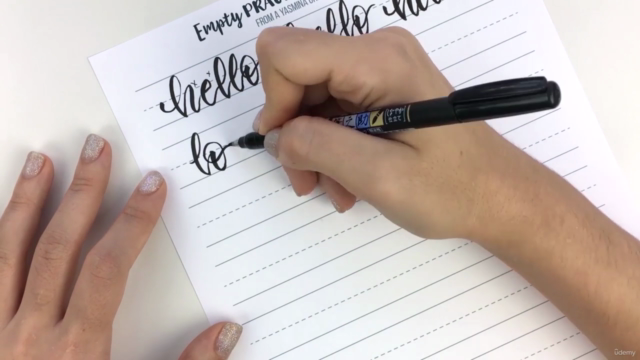 Empty
FROM A YASMINA
hello hello
lo
udemy